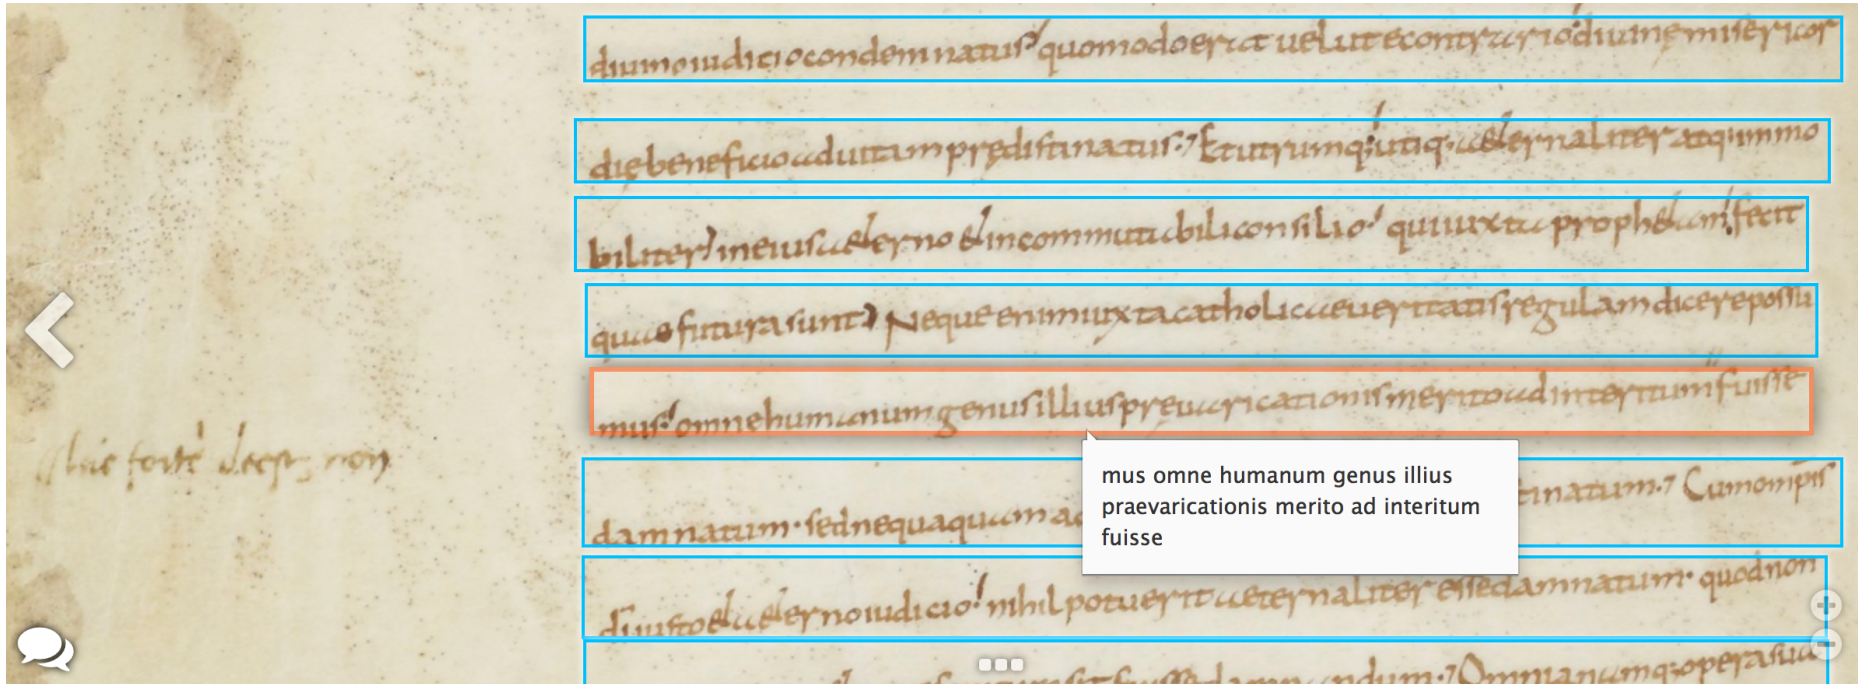 diuino iudicio condemnatus quomodo erit uelut econtrario diuinę misericor
dię beneficio ad uitam prędistinatus. Et utrumq; utiq; aeternaliter atq; immo
biliter in eius aeterno et incommutabili consilio qui iuxta prophetam fecit
quae futura sunt Neque enim iuxta catholicae ueritatis regulam dicere possu
mus omne humanum genus illius pręuaricationis merito ad interitum fuisse
hic forte deest non
mus omne humanum genus illius
praevaricationis merito ad interitum
fuisse
damnatum · sed nequaquam tinatum. Cum omnips
di iusto et aeterno iudicio nihil potuerit aeternaliter esse damnatum · quod non
fuisse damnandum. Omnia namq; opera sua